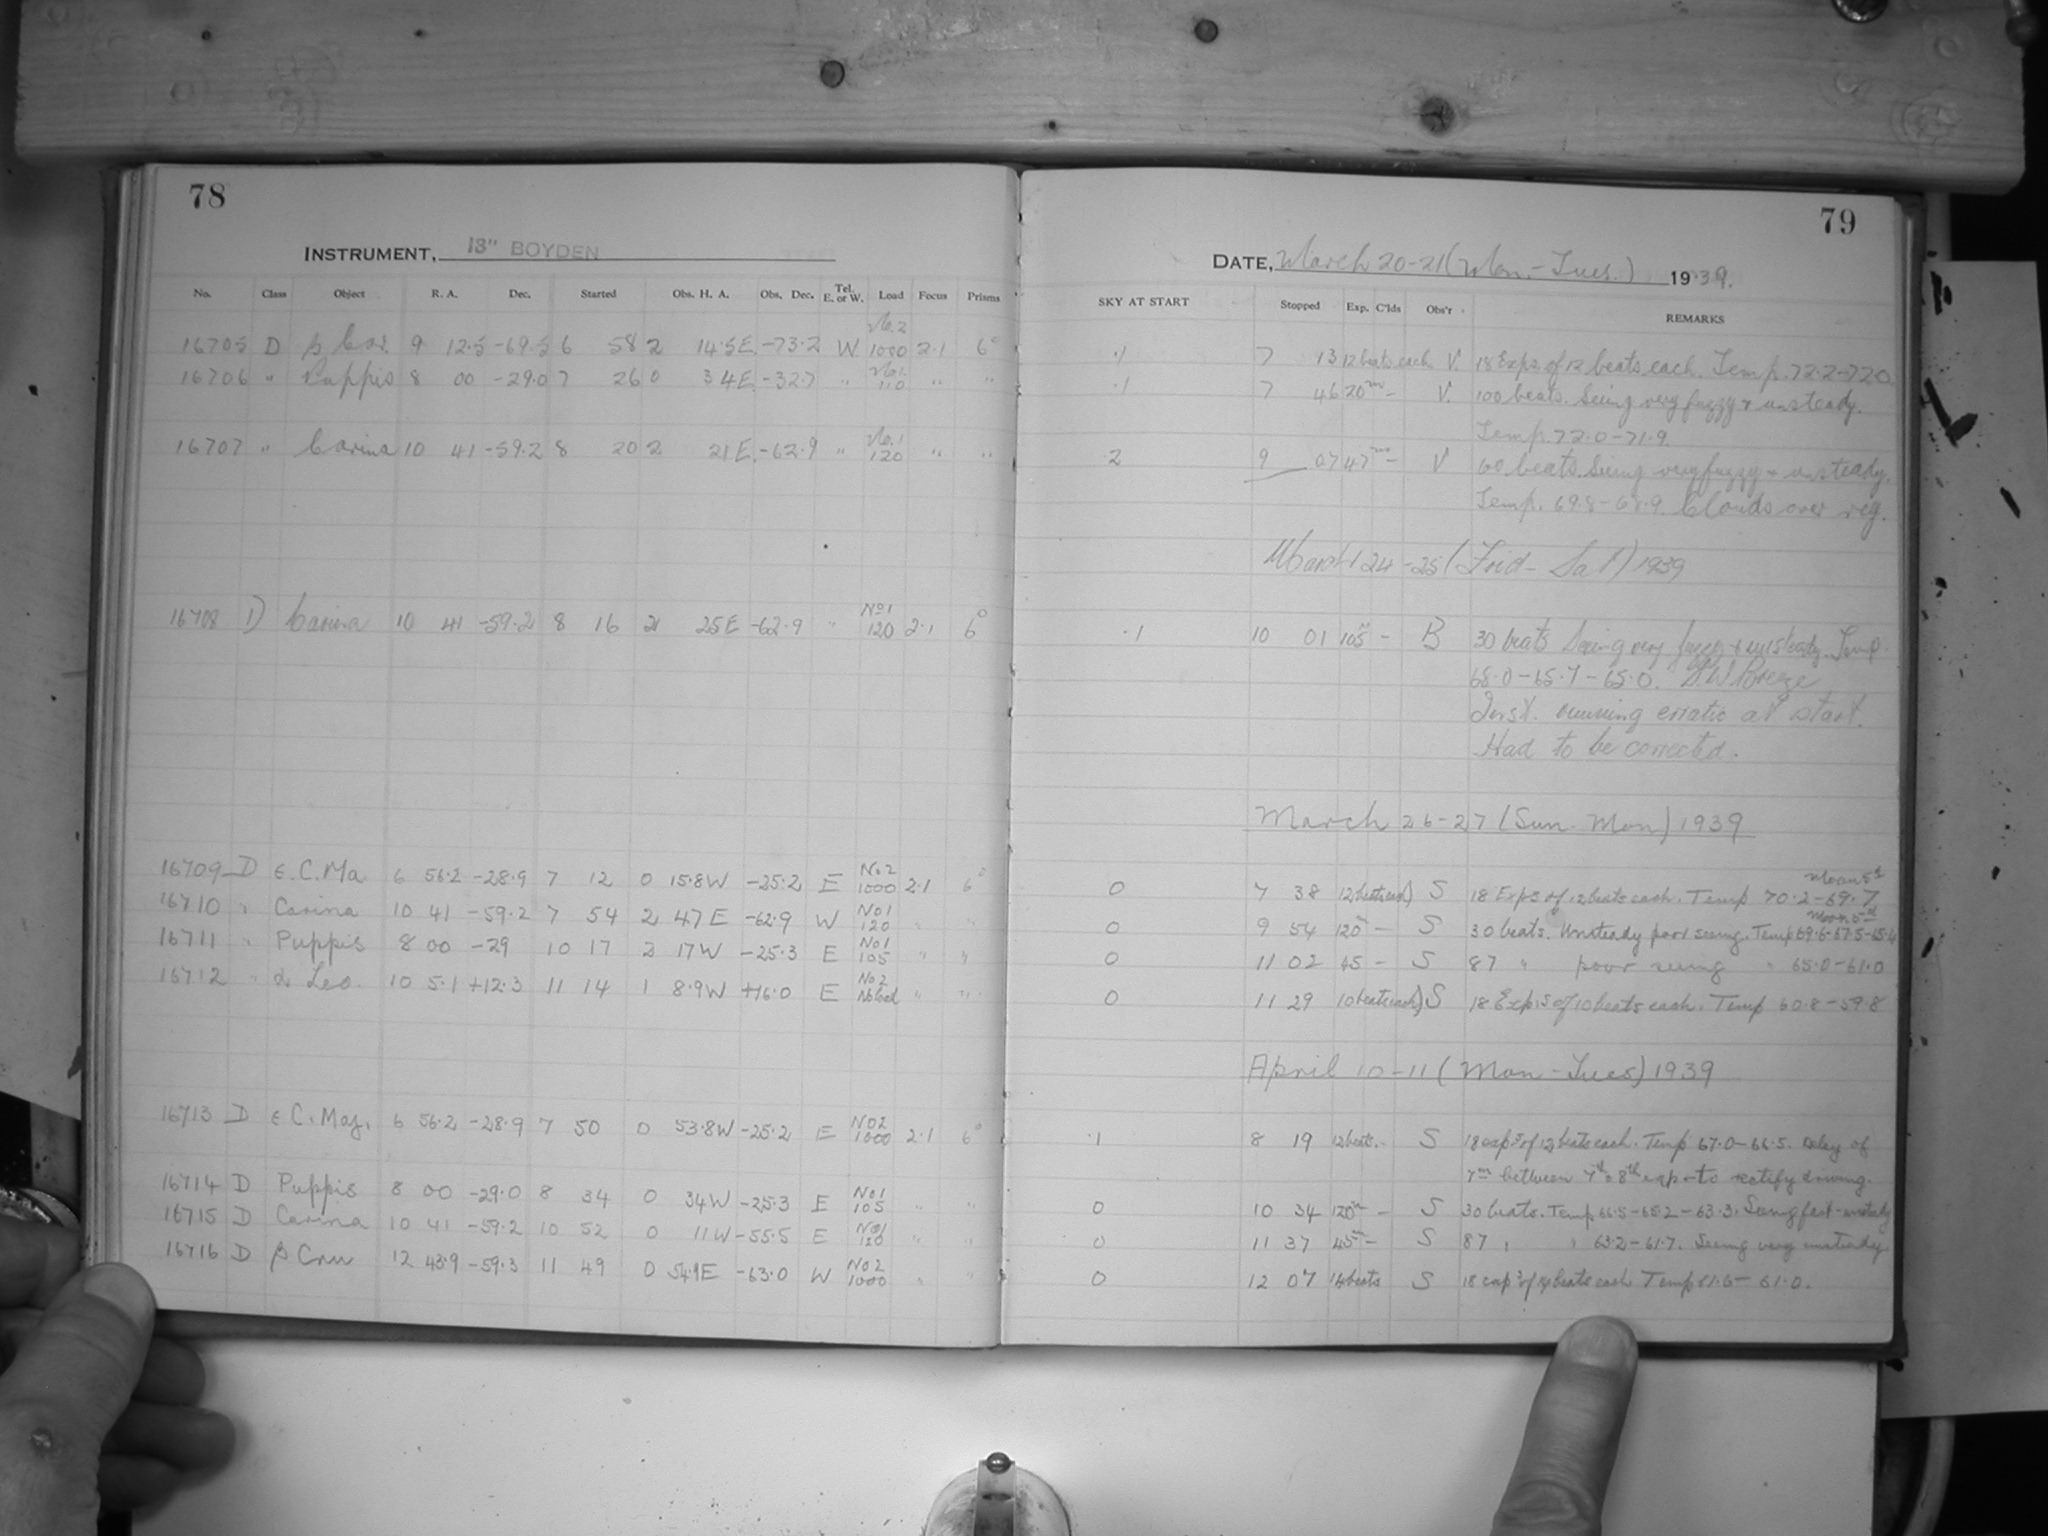 78
INSTRUMENT, 13" BOYDEN
No. Class Object R. A. Dec. Started Obs. H. A. Obs. Dec. Tel. E. or W. Load Focus Prisms
16705 D β Car. 9 12.5 -69.5 6 58 2 14.5E -73.2 W No.2 1000 2.1 6°
16706 " Puppis 8 00 -29.0 7 26 0 34E -32.7 " No.1 110 " "
16707 " Carina 10 41 -59.2 8 20 2 21E -62.9 " No.1 120 " "
16708 D Carina 10 41 -59.2 8 16 2 25E -62.9 " No1 120 2.1 6°
16709 D ε.C.Ma 6 56.2 -28.9 7 12 0 15.8W -25.2 E No2 1000 2.1 6°
16710 " Carina 10 41 -59.2 7 54 2 47E -62.9 W No1 120 " "
16711 " Puppis 8 00 -29 10 17 2 17W -25.3 E No1 105 " "
16712 " α Leo. 10 5.1 +12.3 11 14 1 8.9W +16.0 E No2 No load " "
16713 D ε C. Maj. 6 56.2 -28.9 7 50 0 53.8W -25.2 E No2 1000 2.1 6°
16714 D Puppis 8 00 -29.0 8 34 0 34W -25.3 E No1 105 " "
16715 D Carina 10 41 -59.2 10 52 0 11W -55.5 E No1 120 " "
16716 D β Cru 12 43.9 -59.3 11 49 0 54.9E -63.0 W No2 1000 " "
79
DATE, March 20-21 (Mon.-Tues.) 1939.
SKY AT START Stopped Exp. C'lds Obs'r REMARKS
.1 7 13 12 beats each V. 18 Exps. of 12 beats each. Temp. 72.2-72.0
.1 7 46 20m - V. 100 beats. Seeing very fuzzy & unsteady.
Temp. 72.0-71.9
2 9 07 47m - V 60 beats. Seeing very fuzzy & unsteady.
Temp. 69.8-68.9 Clouds over reg.
March 24-25 (Frid-Sat) 1939
.1 10 01 105m - B 30 beats Seeing very fuzzy & unsteady. Temp.
68.0-65.7-65.0. NW Breeze
Inst. running erratic at start.
Had to be corrected.
March 26-27 (Sun-Mon) 1939
0 7 38 12 beats each) S 18 Exps of 12 beats each. Temp 70.2-69.7
0 9 54 120m - S 30 beats. Unsteady poor seeing. Temp 69.6-67.5-65.4
0 11 02 45 - S 87 " poor seeing " 65.0-61.0
0 11 29 10 beats each) S 18 Exps of 10 beats each. Temp 60.8-59.8
April 10-11 (Mon-Tues) 1939
.1 8 19 12 beats. - S 18 exps of 12 beats each. Temp 67.0-66.5. Delay of
7m between 7th & 8th exp - to rectify driving.
0 10 34 120m - S 30 beats. Temp 66.5-65.2-63.3. Seeing fast-unsteady
0 11 37 45m - S 87 " " 63.2-61.7. Seeing very unsteady
0 12 07 14 beats S 18 exps of 14 beats each Temp 61.6-61.0.